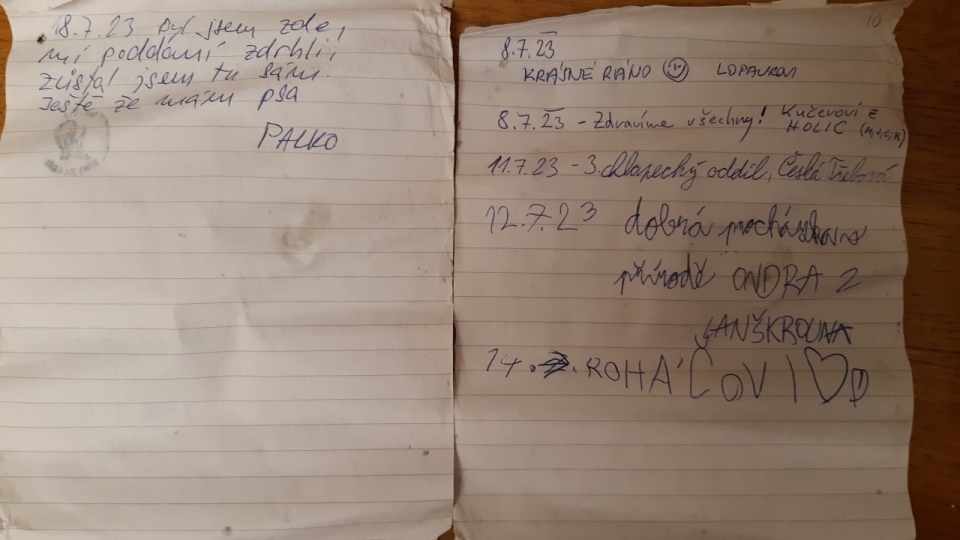 18.7.23 byl jsem zde,
mí poddaní zdrhli,
zůstal jsem tu sám.
Ještě že mám psa
PALKO
10
8.7.23
KRÁSNÉ RÁNO LOPAUROVI
8.7.23 - Zdravíme všechny! Kučerovi z
HOLIC
11.7.23 - 3. chlapecký oddíl, Česká Třebová
12.7.23 dobrá procházka v
přírodě ONDRA Z
LANŠKROUNA
14. 7. ROHÁČOVI